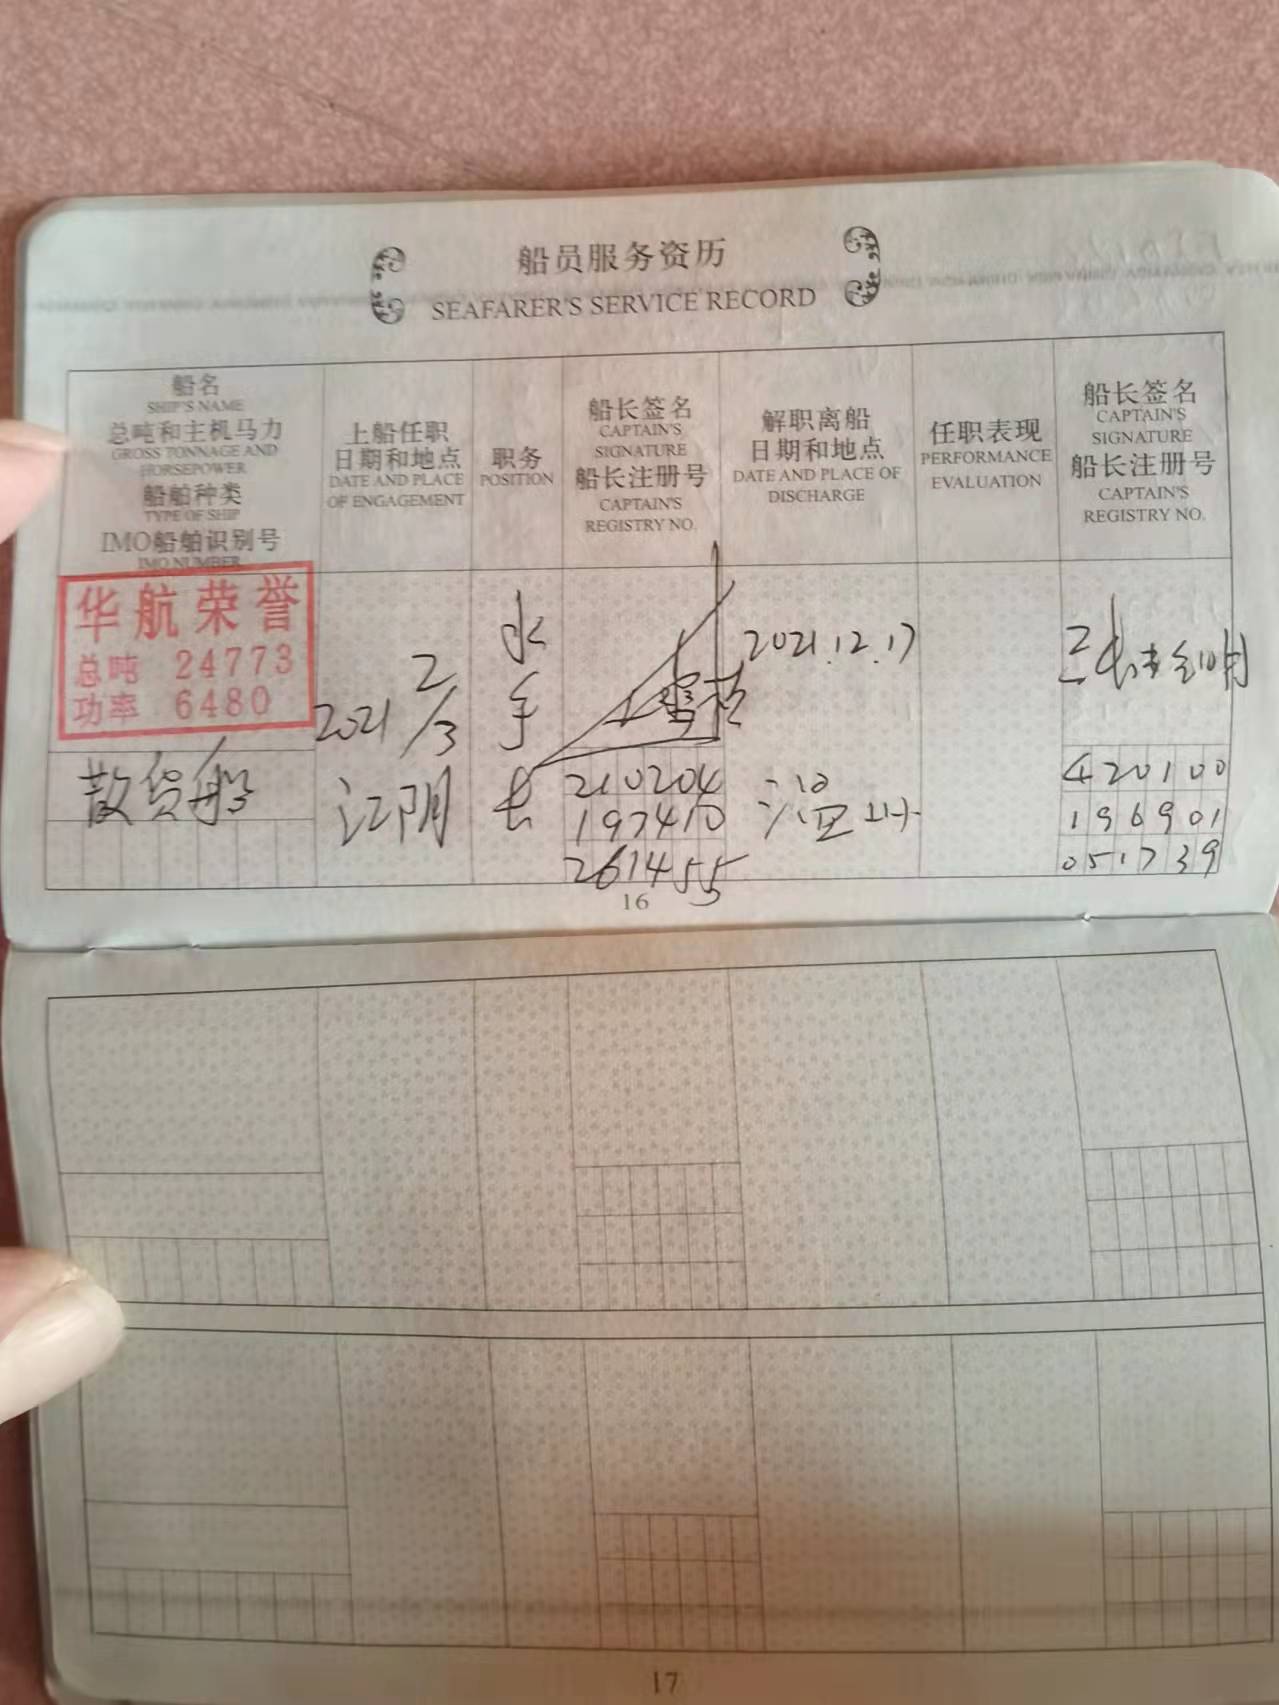 船员服务资历
SEAFARER'S SERVICE RECORD
船名
SHIP'S NAME
总吨和主机马力
GROSS TONNAGE AND
HORSEPOWER
船舶种类
TYPE OF SHIP
IMO船舶识别号
IMO NUMBER
上船任职
日期和地点
DATE AND PLACE
OF ENGAGEMENT
职务
POSITION
船长签名
CAPTAIN'S
SIGNATURE
船长注册号
CAPTAIN'S
REGISTRY NO.
解职离船
日期和地点
DATE AND PLACE OF
DISCHARGE
任职表现
PERFORMANCE
EVALUATION
船长签名
CAPTAIN'S
SIGNATURE
船长注册号
CAPTAIN'S
REGISTRY NO.
华航荣誉
总吨 24773
功率 6480
散货船
2021 2/3
江阴
水
手
长
210204
197410
261455
2021.12.17
温州
420100
196901
051739
16
17